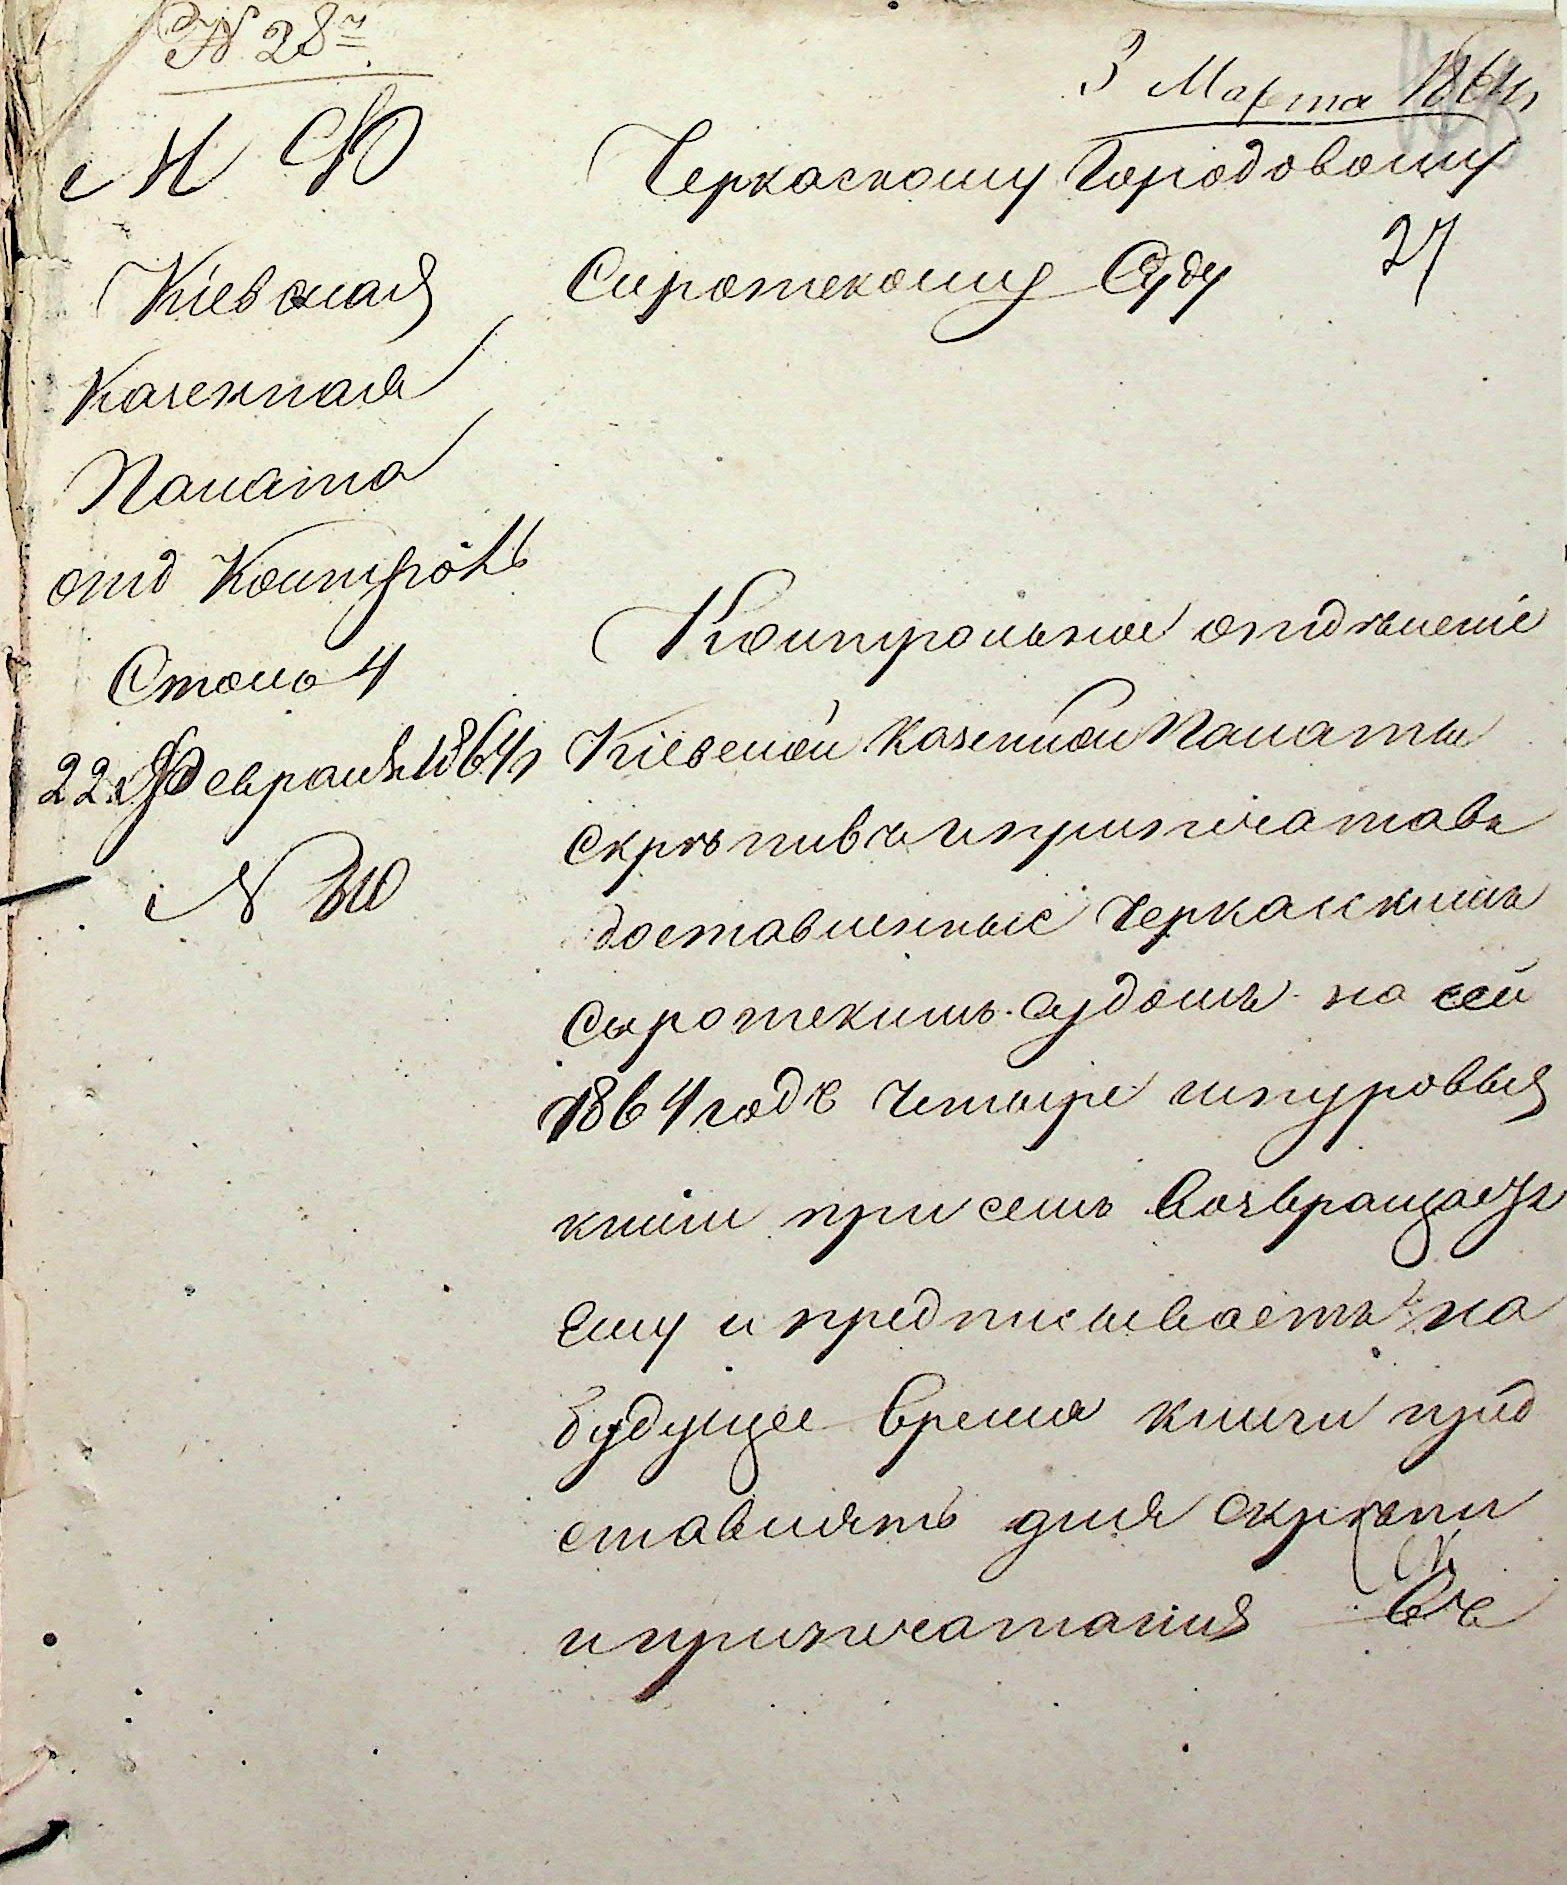 3 Марта 1864
М Ф
Кіевская
Казенная
Палата
отд Контроль
Столъ 4
22 Февраля 1864 г
Черкаскому Городовому
Сиротскому Суду
27
Контрольное отдѣленіе
Кіевской Казенной Палаты
скрѣпивъ и припечатавъ
доставленные Черкасскимъ
Сыротскимъ Судомъ на сей
1864 годъ четыре шнуровыя
книги при семъ возвращаетъ
ему и предписываетъ на
будущее время книги пред
ставлять для скрѣпы
и припечатанія въ